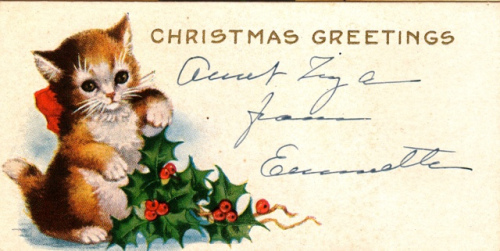 CHRISTMAS GREETINGS
Aunt Ziza
from
Emmette